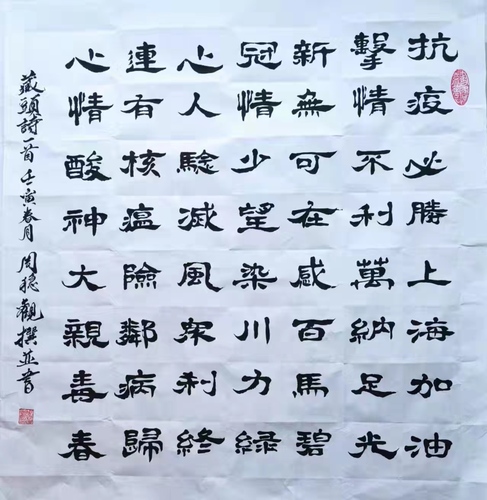 抗擊新冠心連心
疫情無情人有情
必不可少驗核酸
勝利在望滅瘟神
上萬感染風險大
海納百川深鄰親
加足馬力刹病毒
油光碧綠終歸春
藏頭詩一首 壬寅春月 周穩觀撰並書